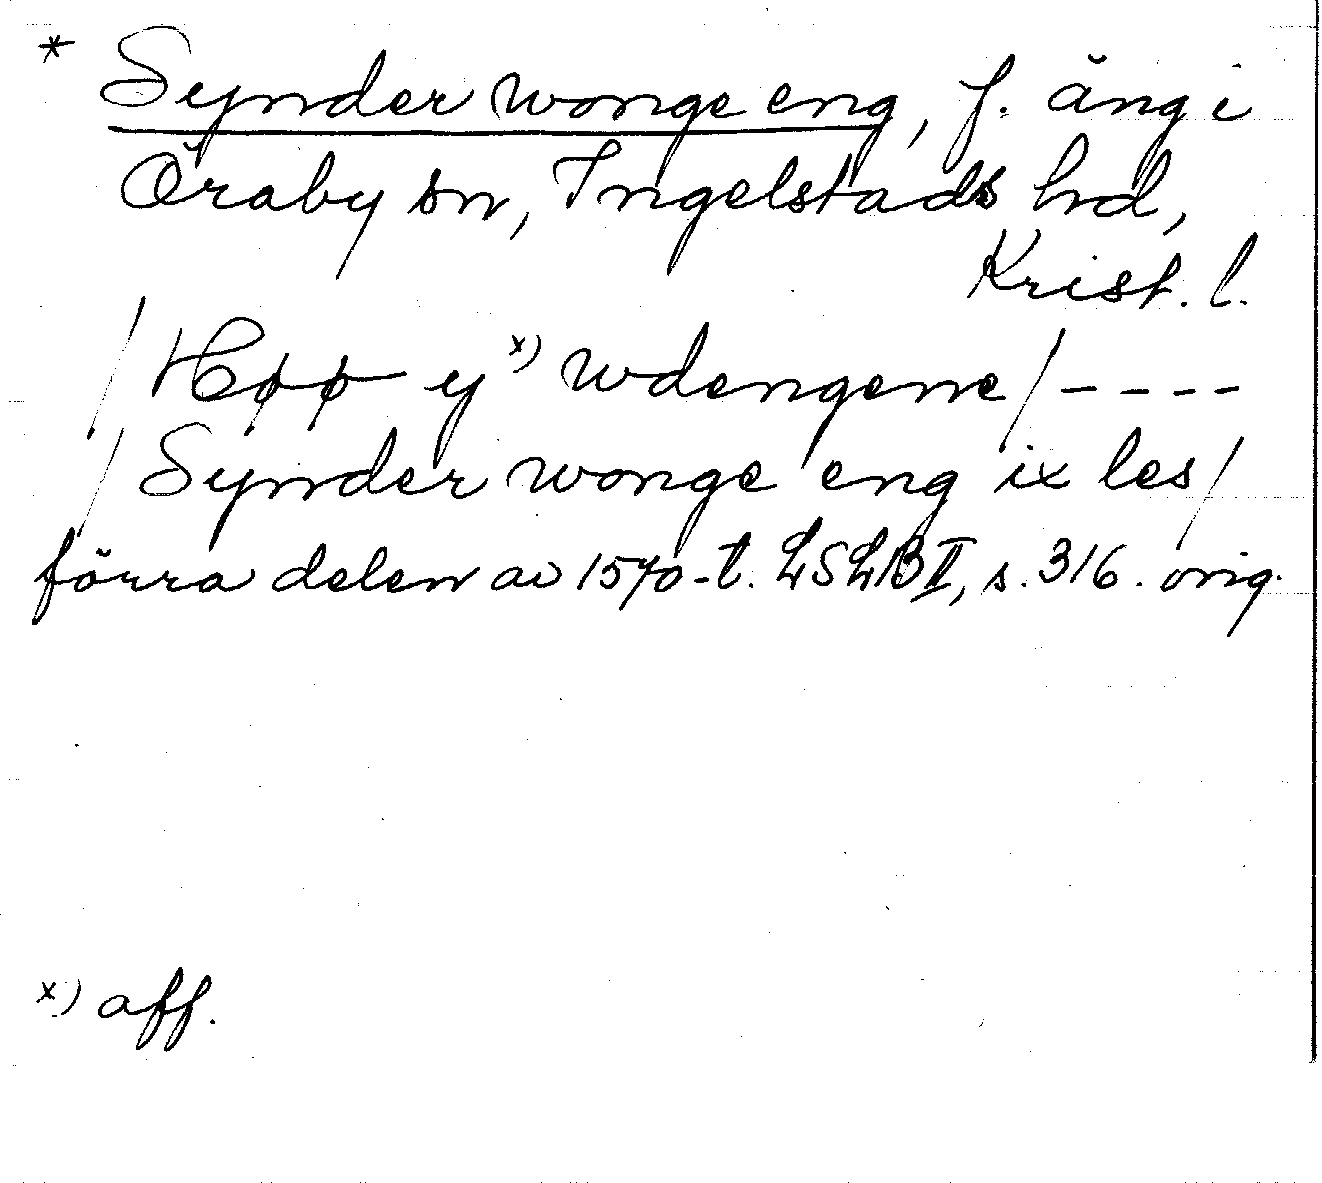 * Synder wonge eng, f. äng i
Öraby sn, Ingelstads hd,
Krist. l.
/ Høø y x) wdengenne / - - - -
/ Synder wonge eng ix les /
förra delen av 1570-t. LSLB II, s. 316. orig.
x) aff.